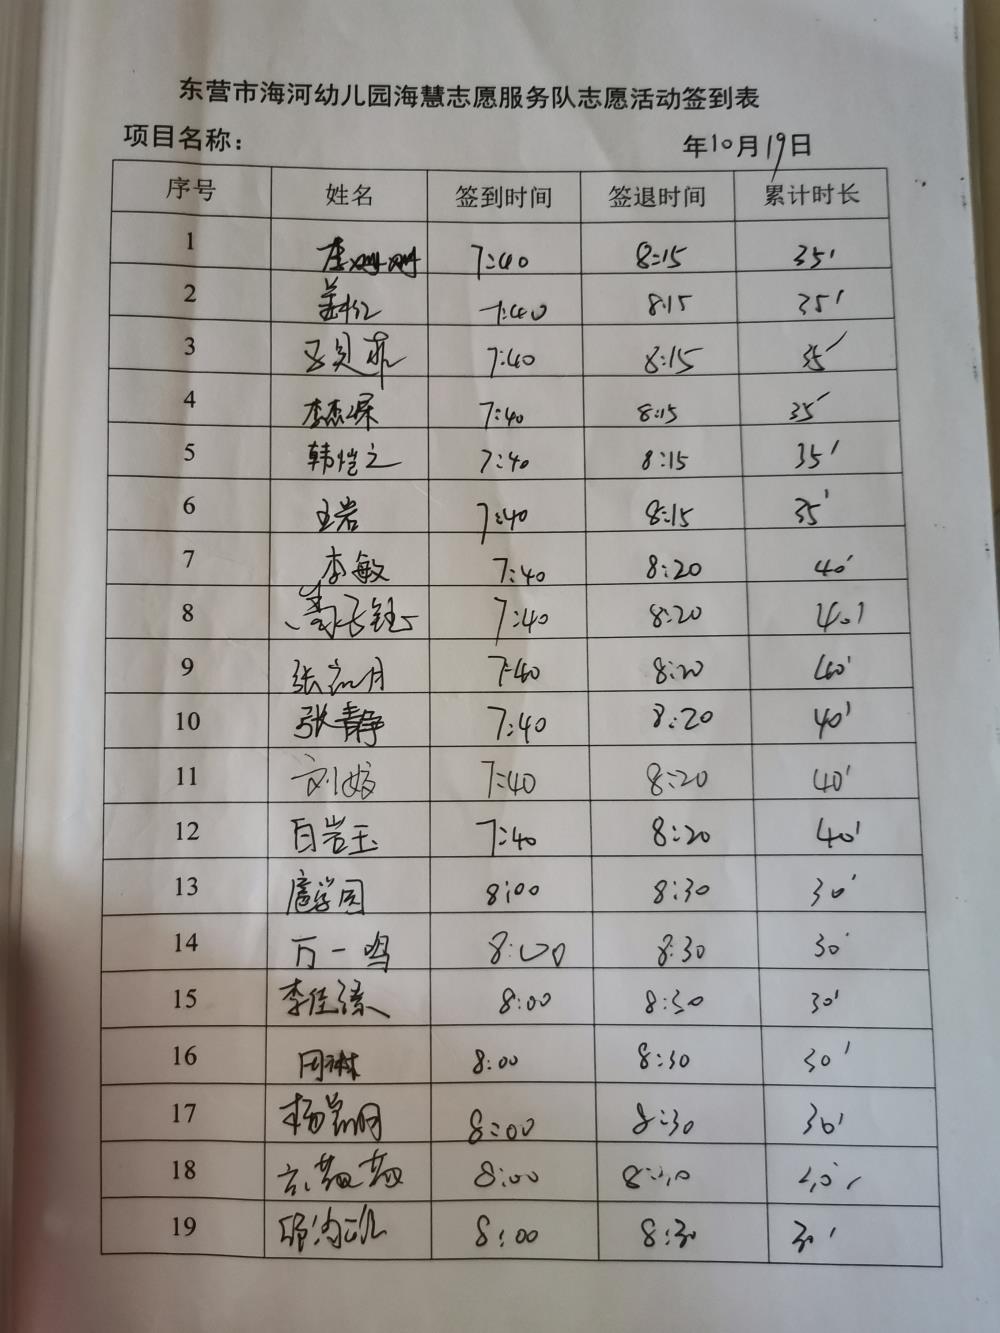 东营市海河幼儿园海慧志愿服务队志愿活动签到表
项目名称： 年10月19日
序号 姓名 签到时间 签退时间 累计时长
1 李姗姗 7:40 8:15 35'
2 7:40 8:15 35'
3 7:40 8:15 35'
4 李杰 7:40 8:15 35'
5 韩恺之 7:40 8:15 35'
6 王岩 7:40 8:15 35'
7 李敏 7:40 8:20 40'
8 7:40 8:20 40'
9 张 月 7:40 8:20 40'
10 张静 7:40 8:20 40'
11 刘 7:40 8:20 40'
12 白岩玉 7:40 8:20 40'
13 8:00 8:30 30'
14 万一鸣 8:00 8:30 30'
15 李佳 8:00 8:30 30'
16 周琳 8:00 8:30 30'
17 杨 8:00 8:30 30'
18 8:00 8:30 30'
19 8:00 8:30 30'